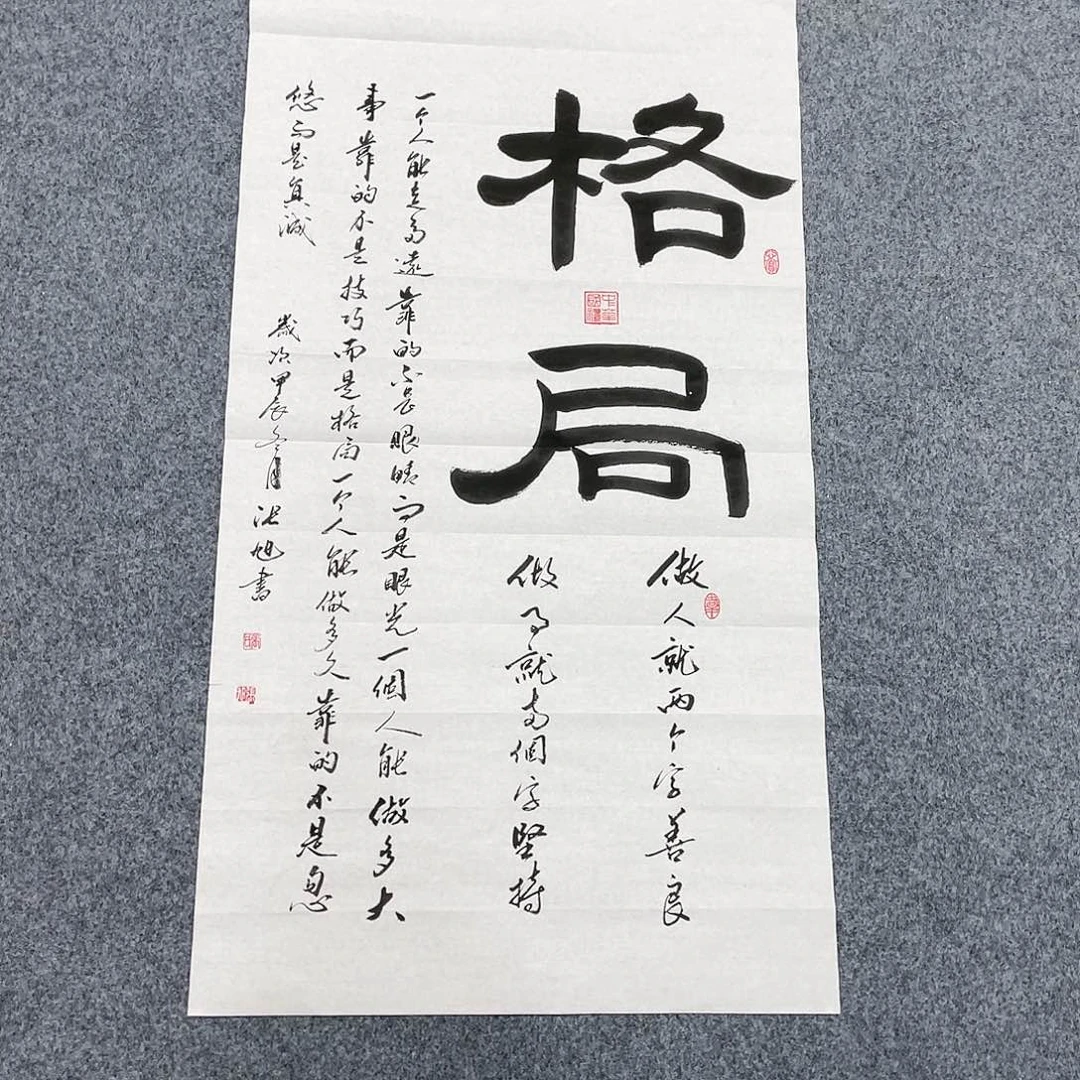 格局
做人就两个字善良
做事就两個字堅持
一个人能走多遠靠的不是眼睛而是眼光一個人能做多大
事靠的不是技巧而是格局一个人能做多久靠的不是忽
悠而是真诚
歲次甲辰冬月张旭書